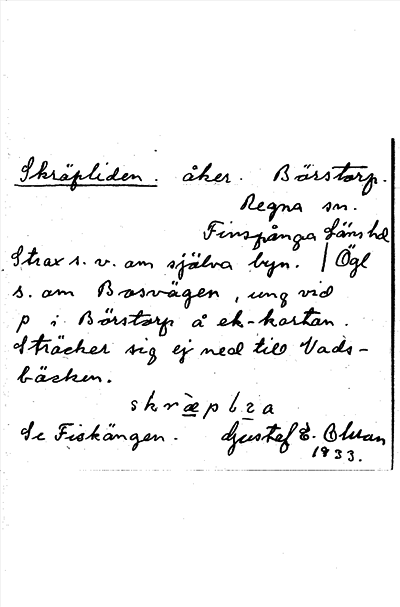 Skräpliden. åker. Börstorp.
Regna sn.
Finspånga länshd
Strax s. v. om själva byn. | Ögl
s. om Bosvägen, ung vid
p i Börstorp å ek-kartan.
Sträcker sig ej ned till Vads-
bäcken.
Se Fiskängen. Gustaf E. Olsson
1933.